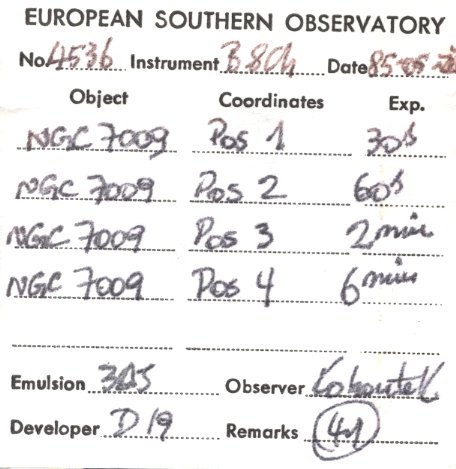 EUROPEAN SOUTHERN OBSERVATORY
No. 4536 Instrument B&Ch Date 85-05-
Object Coordinates Exp.
NGC 7009 Pos 1 30s
NGC 7009 Pos 2 60s
NGC 7009 Pos 3 2 min
NGC 7009 Pos 4 6 min
Emulsion Observer Kohoutek
Developer D19 Remarks